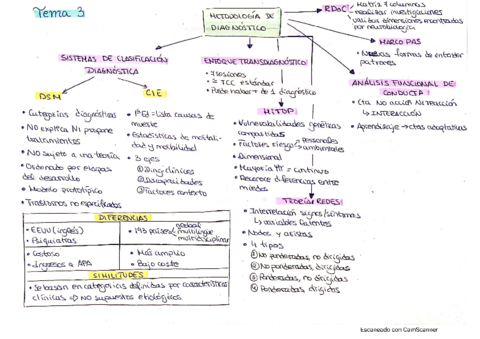 Tema 3
METODOLOGÍA DE
DIAGNÓSTICO
RDoC
Matriz 7 columnas
realizar investigaciones
dimensiones
neurobiología
MARCO PAS
Nuevas formas de entender
patrones
ANÁLISIS FUNCIONAL DE
CONDUCTA
Cta NO ACCIÓN NI REACCIÓN
↳ INTERACCIÓN
Aprendizaje → ctas adaptativas
SISTEMAS DE CLASIFICACIÓN
DIAGNÓSTICA
DSM
• Categorías diagnósticas
• NO explica NI propone
tratamientos
• NO sujeto a una teoría
• Ordenado por etapas
del desarrollo
• Modelo prototípico
• Trastornos no especificados
CIE
• 1ª Ed → lista causas de
muerte
• Estadísticas de mortali-
dad y morbilidad
• 3 ejes
① Diag. clínicos
② Discapacidades
③ Factores contexto
ENFOQUE TRANSDIAGNÓSTICO
• sesiones
• TCC estándar
• Puede haber + de 1 diagnóstico
HITOP
• Vulnerabilidades genéticas
compartidas
• Factores riesgo
Personales
ambientales
• Dimensional
• Mayoría = Continuo
• Reconoce diferencias entre
TEORÍA REDES
• Interrelación signos/síntomas
↳ variables latentes
• Nodos y aristas
• 4 tipos
① No ponderadas, no dirigidas
② No ponderadas, dirigidas
③ Ponderadas, no dirigidas
④ Ponderadas, dirigidas
DIFERENCIAS
• EEUU (inglés)
• Psiquiatras
• 193 países
global
multilingüe
multidisciplinar
• Costoso
• Ingresos a APA
• Más amplio
• Bajo coste
SIMILITUDES
• Se basan en categorías definidas por características
clínicas ⇒ NO supuestos etiológicos
Escaneado con CamScanner